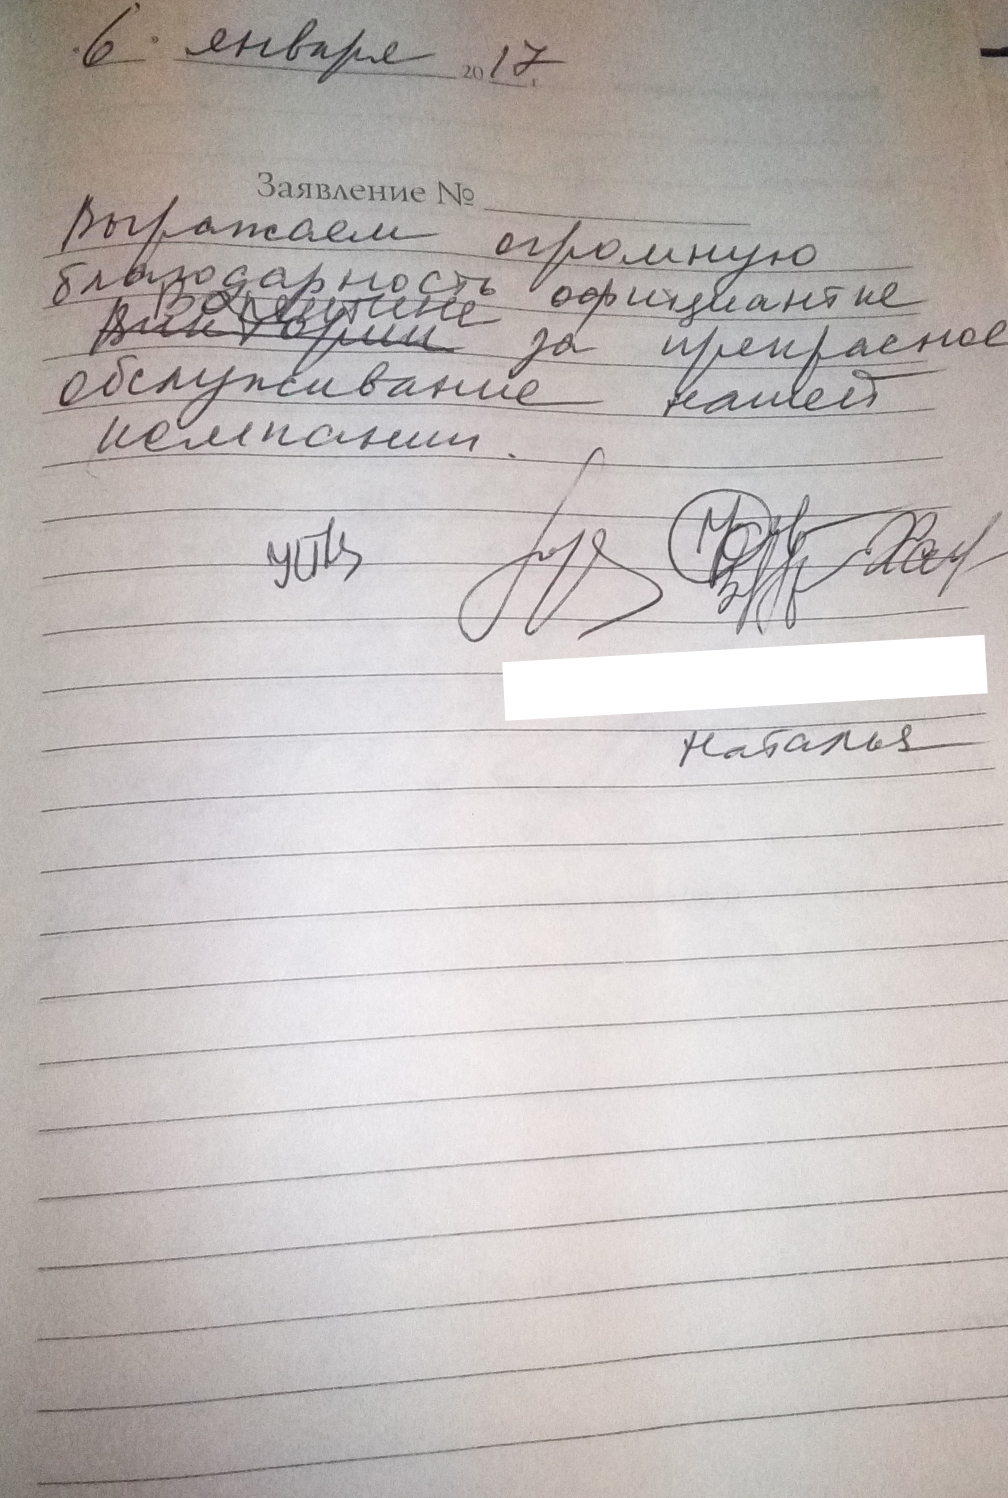 "6" января 2017 г.
Заявление №
Выражаем огромную
благодарность официантке
Валентине
Виктории за прекрасное
обслуживание нашей
компании.
Наталья